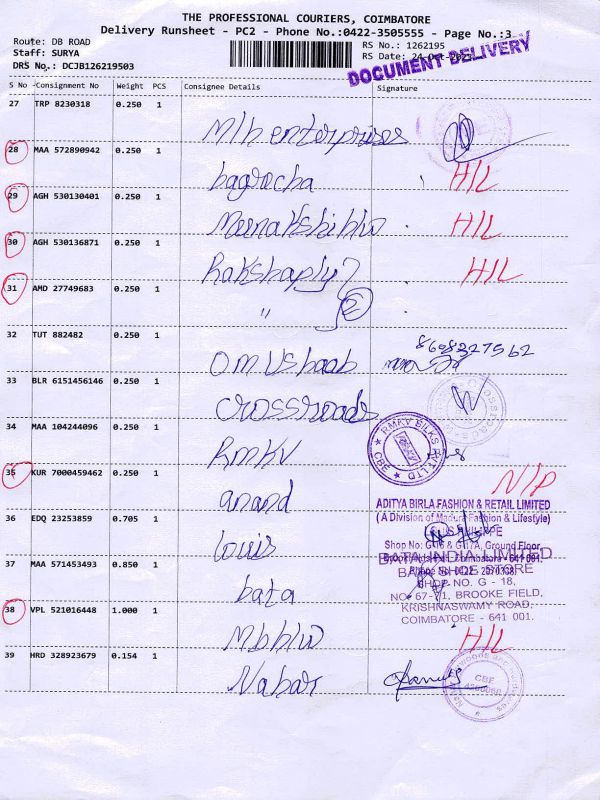 THE PROFESSIONAL COURIERS, COIMBATORE
Delivery Runsheet - PC2 - Phone No.:0422-3505555 - Page No.:3
Route: DB ROAD
Staff: SURYA
DRS No.: DCJB126219503
RS No.: 1262195
RS Date: 24-Oct-2021
DOCUMENT DELIVERY
S No -Consignment No Weight PCS Consignee Details Signature
27 TRP 8230318 0.250 1
M/h enterprises
28 MAA 572890942 0.250 1
bagrecha H/L
29 AGH 530130401 0.250 1
H/L
30 AGH 530136871 0.250 1
H/L
31 AMD 27749683 0.250 1
"
32 TUT 882482 0.250 1
8608327562
33 BLR 6151456146 0.250 1
crossroads
34 MAA 104244096 0.250 1
Rmkv
RMKV SILKS PVT LTD
CBE
35 KUR 7000459462 0.250 1
anand N/P
36 EDQ 23253859 0.705 1
louis
ADITYA BIRLA FASHION & RETAIL LIMITED
(A Division of Madura Fashion & Lifestyle)
37 MAA 571453493 0.850 1
bata
BATA INDIA LIMITED
BATA SHOE STORE
SHOP NO. G - 18,
NO. 67-71, BROOKE FIELD,
KRISHNASWAMY ROAD,
COIMBATORE - 641 001.
38 VPL 521016448 1.000 1
H/L
39 HRD 328923679 0.154 1
Nahar
CBE